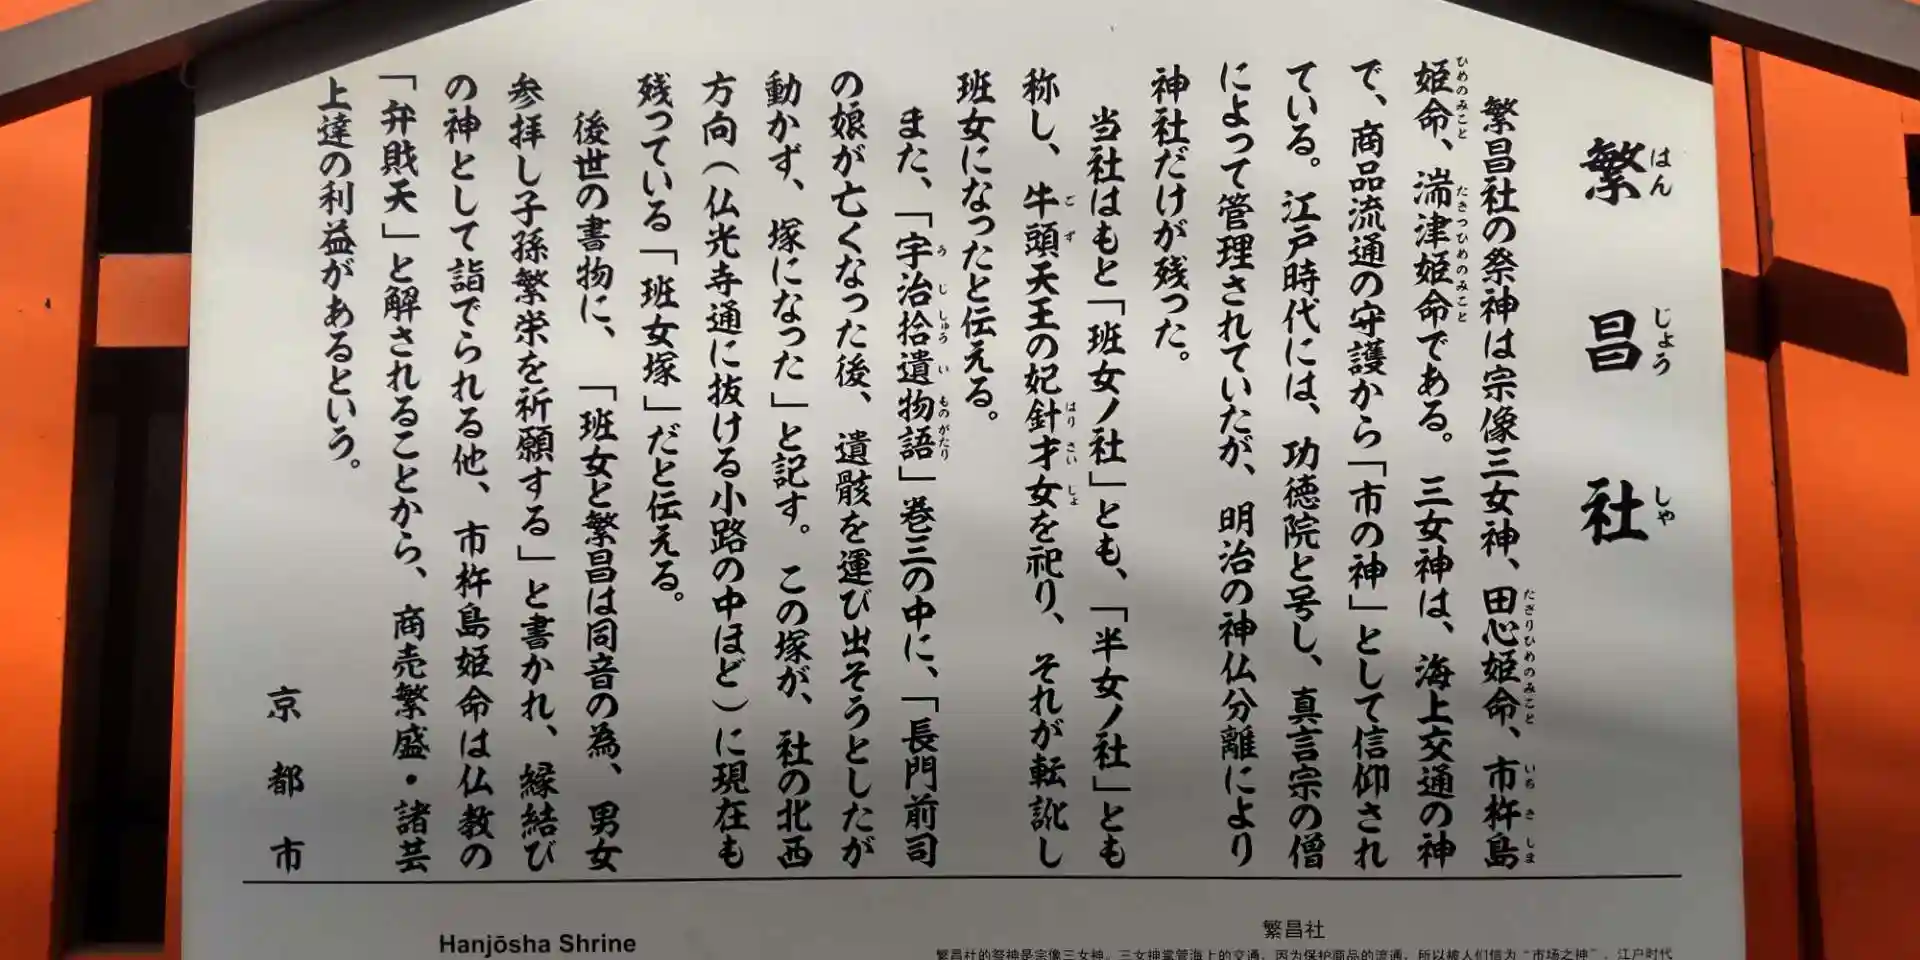 繁昌社
はんじょうしゃ
繁昌社の祭神は宗像三女神、田心姫命、市杵島
たぎりひめのみこと いちきしま
姫命、湍津姫命である。三女神は、海上交通の神
ひめのみこと たきつひめのみこと
で、商品流通の守護から「市の神」として信仰され
ている。江戸時代には、功徳院と号し、真言宗の僧
によって管理されていたが、明治の神仏分離により
神社だけが残った。
当社はもと「班女ノ社」とも、「半女ノ社」とも
称し、牛頭天王の妃針才女を祀り、それが転訛し
ごず はりさいじょ
班女になったと伝える。
また、「宇治拾遺物語」巻三の中に、「長門前司
うじしゅういものがたり
の娘が亡くなった後、遺骸を運び出そうとしたが
動かず、塚になった」と記す。この塚が、社の北西
方向(仏光寺通に抜ける小路の中ほど)に現在も
残っている「班女塚」だと伝える。
後世の書物に、「班女と繁昌は同音の為、男女
参拝し子孫繁栄を祈願する」と書かれ、縁結び
の神として詣でられる他、市杵島姫命は仏教の
「弁財天」と解されることから、商売繁盛・諸芸
上達の利益があるという。
京都市
Hanjōsha Shrine
繁昌社
繁昌社的祭神是宗像三女神。三女神掌管海上的交通，因为保护商品的流通，所以被人们信为“市场之神”。江户时代